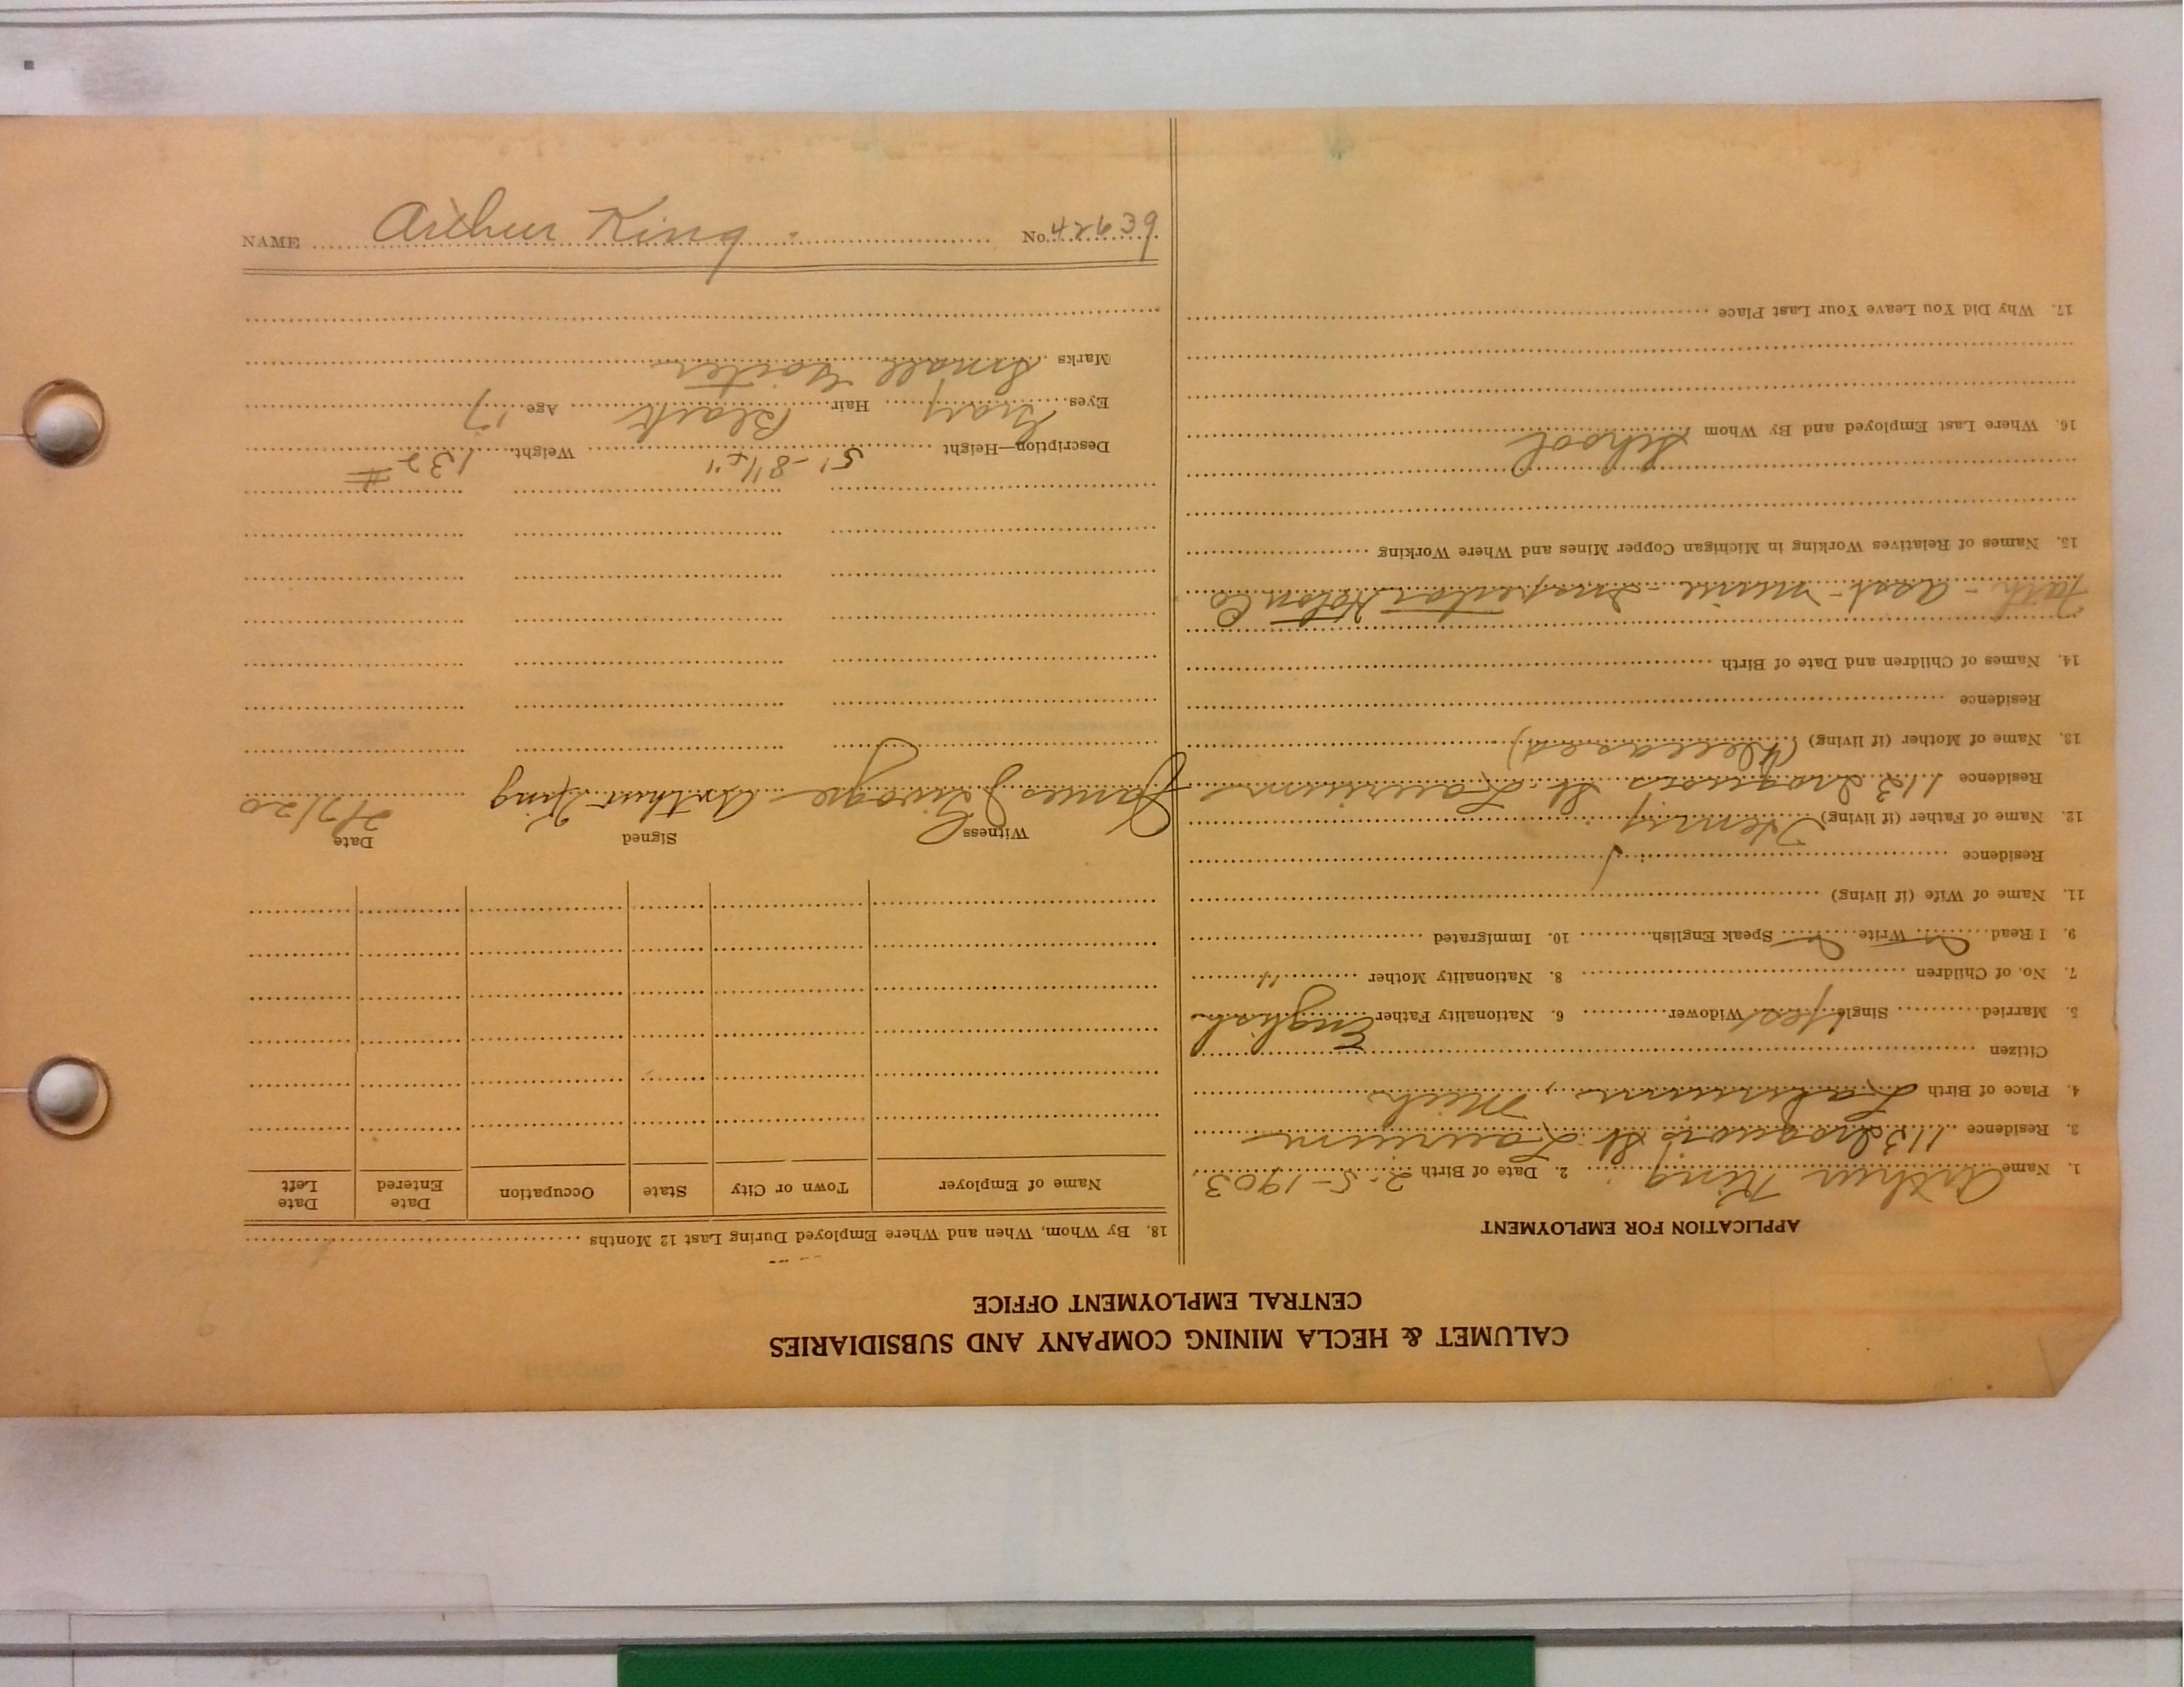 CALUMET & HECLA MINING COMPANY AND SUBSIDIARIES
CENTRAL EMPLOYMENT OFFICE
APPLICATION FOR EMPLOYMENT
1. Name Arthur King. 2. Date of Birth 2-5-1903.
3. Residence 113 Iroquois St. Laurium
4. Place of Birth Laurium, Mich
Citizen
5. Married Single Yes Widower 6. Nationality Father English
7. No. of Children 8. Nationality Mother "
9. I Read Write Speak English 10. Immigrated
11. Name of Wife (if living)
Residence
12. Name of Father (if living) Henry
Residence 113 Iroquois St. Laurium
13. Name of Mother (if living) (Deceased)
Residence
14. Names of Children and Date of Birth
Fath - Asst - Mine - Inspector Hoton Co
15. Names of Relatives Working in Michigan Copper Mines and Where Working
16. Where Last Employed and By Whom School
17. Why Did You Leave Your Last Place
18. By Whom, When and Where Employed During Last 12 Months
Name of Employer Town or City State Occupation Date Entered Date Left
Witness Signed Date
James Arthur King 2/7/20
Description—Height 5'-8½" Weight 132 #
Eyes Gray Hair Black Age 17
Marks Small Goiter
NAME Arthur King. No. 42639